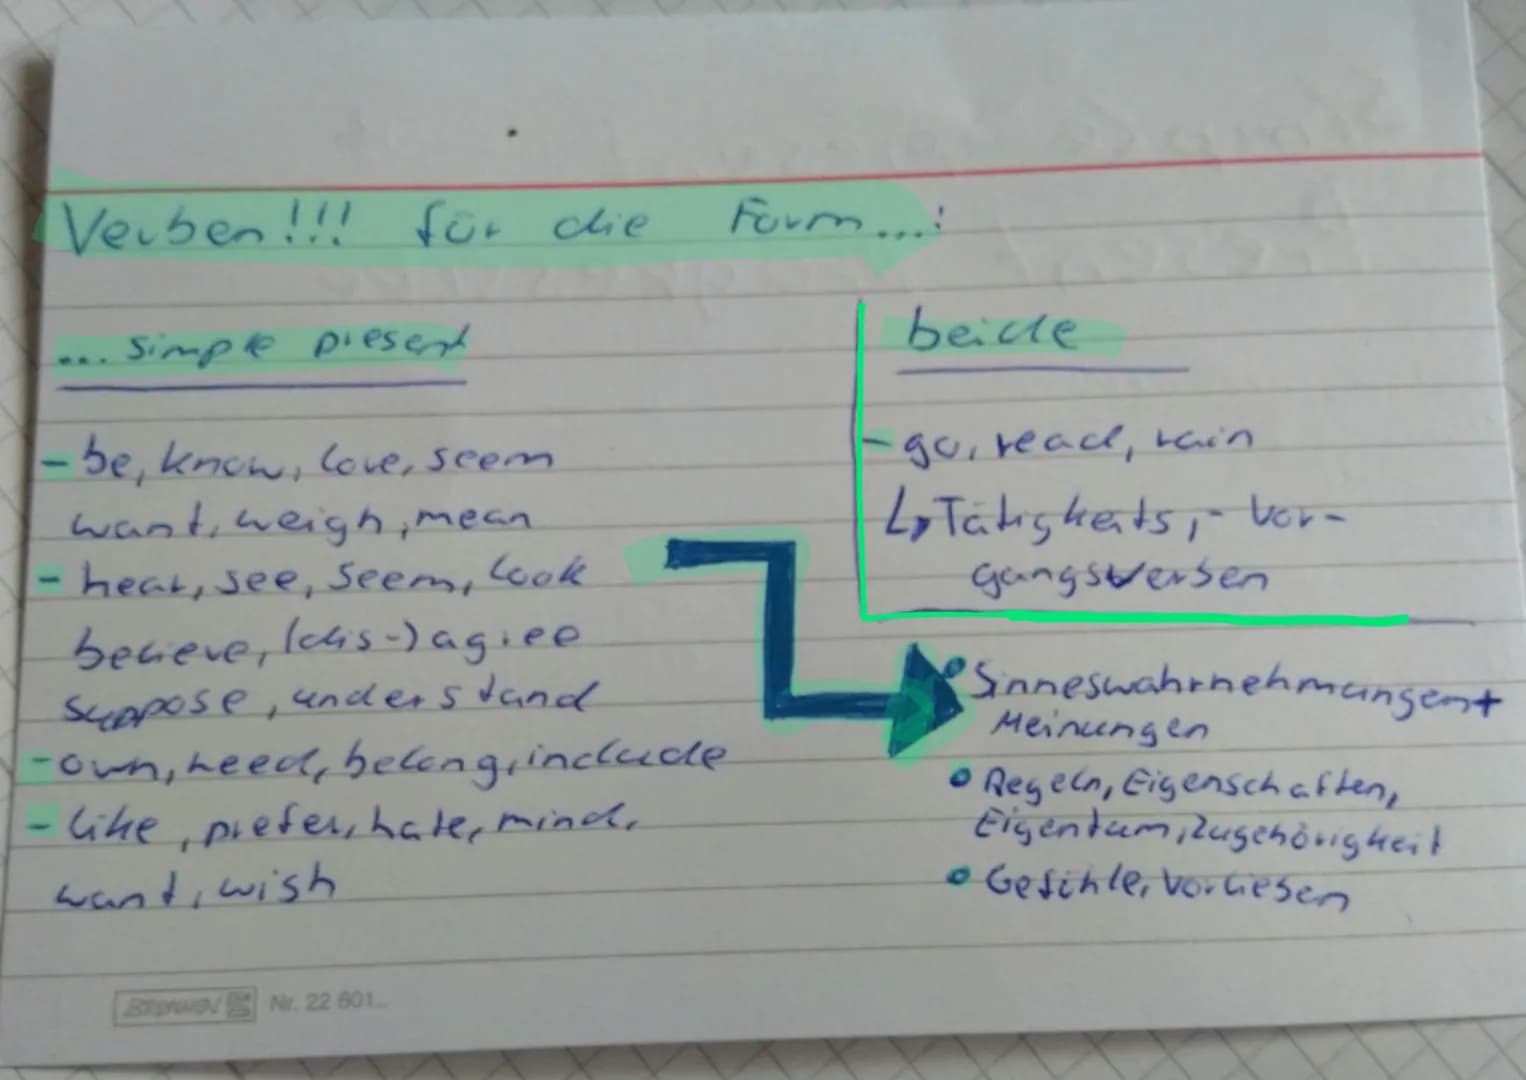 Verben!!! für die Form...:
... simple present
- be, know, love, seem
want, weigh, mean
- hear, see, seem, look
believe, (dis-) agree
suppose, understand
- own, need, belong, include
- like, prefer, hate, mind,
want, wish
beide
- go, read, rain
↳ Tätigkeits,- Vor-
gangsverben
• Sinneswahrnehmungen +
Meinungen
• Regeln, Eigenschaften,
Eigentum, Zugehörigkeit
• Gefühle, Vorlieben
BRUNNEN Nr. 22 601..